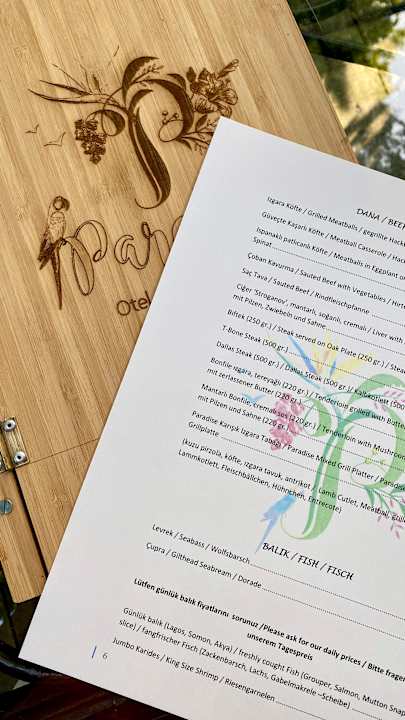 Para
Otel
DANA / BEEF
Izgara Köfte / Grilled Meatballs / gegrillte
Güveçte Kaşarlı Köfte / Meatball Casserole /
Ispanaklı patlıcanlı Köfte / Meatballs in Eggplant
Spinat
Çoban Kavurma / Sauted Beef with Vegetables /
Saç Tava / Sauted Beef / Rindfleischpfanne
Ciğer 'Stroganov', mantarlı, soğanlı, cremalı / Liver with
mit Pilzen, Zwiebeln und Sahne
Biftek (250 gr.) / Steak served on Oak Plate (250 gr.) /
T-Bone Steak (500 gr.)
Dallas Steak (500 gr.) / Dallas Steak (500 gr.) / Kalbkotlett (500
Bonfile ızgara, tereyağlı (220 gr.) / Tenderloin grilled with Butter
mit zerlassener Butter (220 gr.)
Mantarlı Bonfile, cremalı sos (220 gr.) / Tenderloin with Mushroom
mit Pilzen und Sahne (220 gr.)
Paradise Karışık Izgara Tabağı / Paradise Mixed Grill Platter / Paradise
Grillplatte
(kuzu pirzola, köfte, ızgara tavuk, antrikot / Lamb Cutlet, Meatball,
Lammkotlett, Fleischbällchen, Hühnchen, Entrecote)
BALIK / FISH / FISCH
Levrek / Seabass / Wolfsbarsch
Çupra / Gilthead Seabream / Dorade
Lütfen günlük balık fiyatlarını sorunuz /Please ask for our daily prices / Bitte fragen
unserem Tagespreis
Günlük balık (Lagos, Somon, Akya) / freshly cought Fish (Grouper, Salmon, Mutton Snap
slice) / fangfrischer Fisch (Zackenbarsch, Lachs, Gabelmakrele –Scheibe)
Jumbo Karides / King Size Shrimp / Riesengarnelen
6